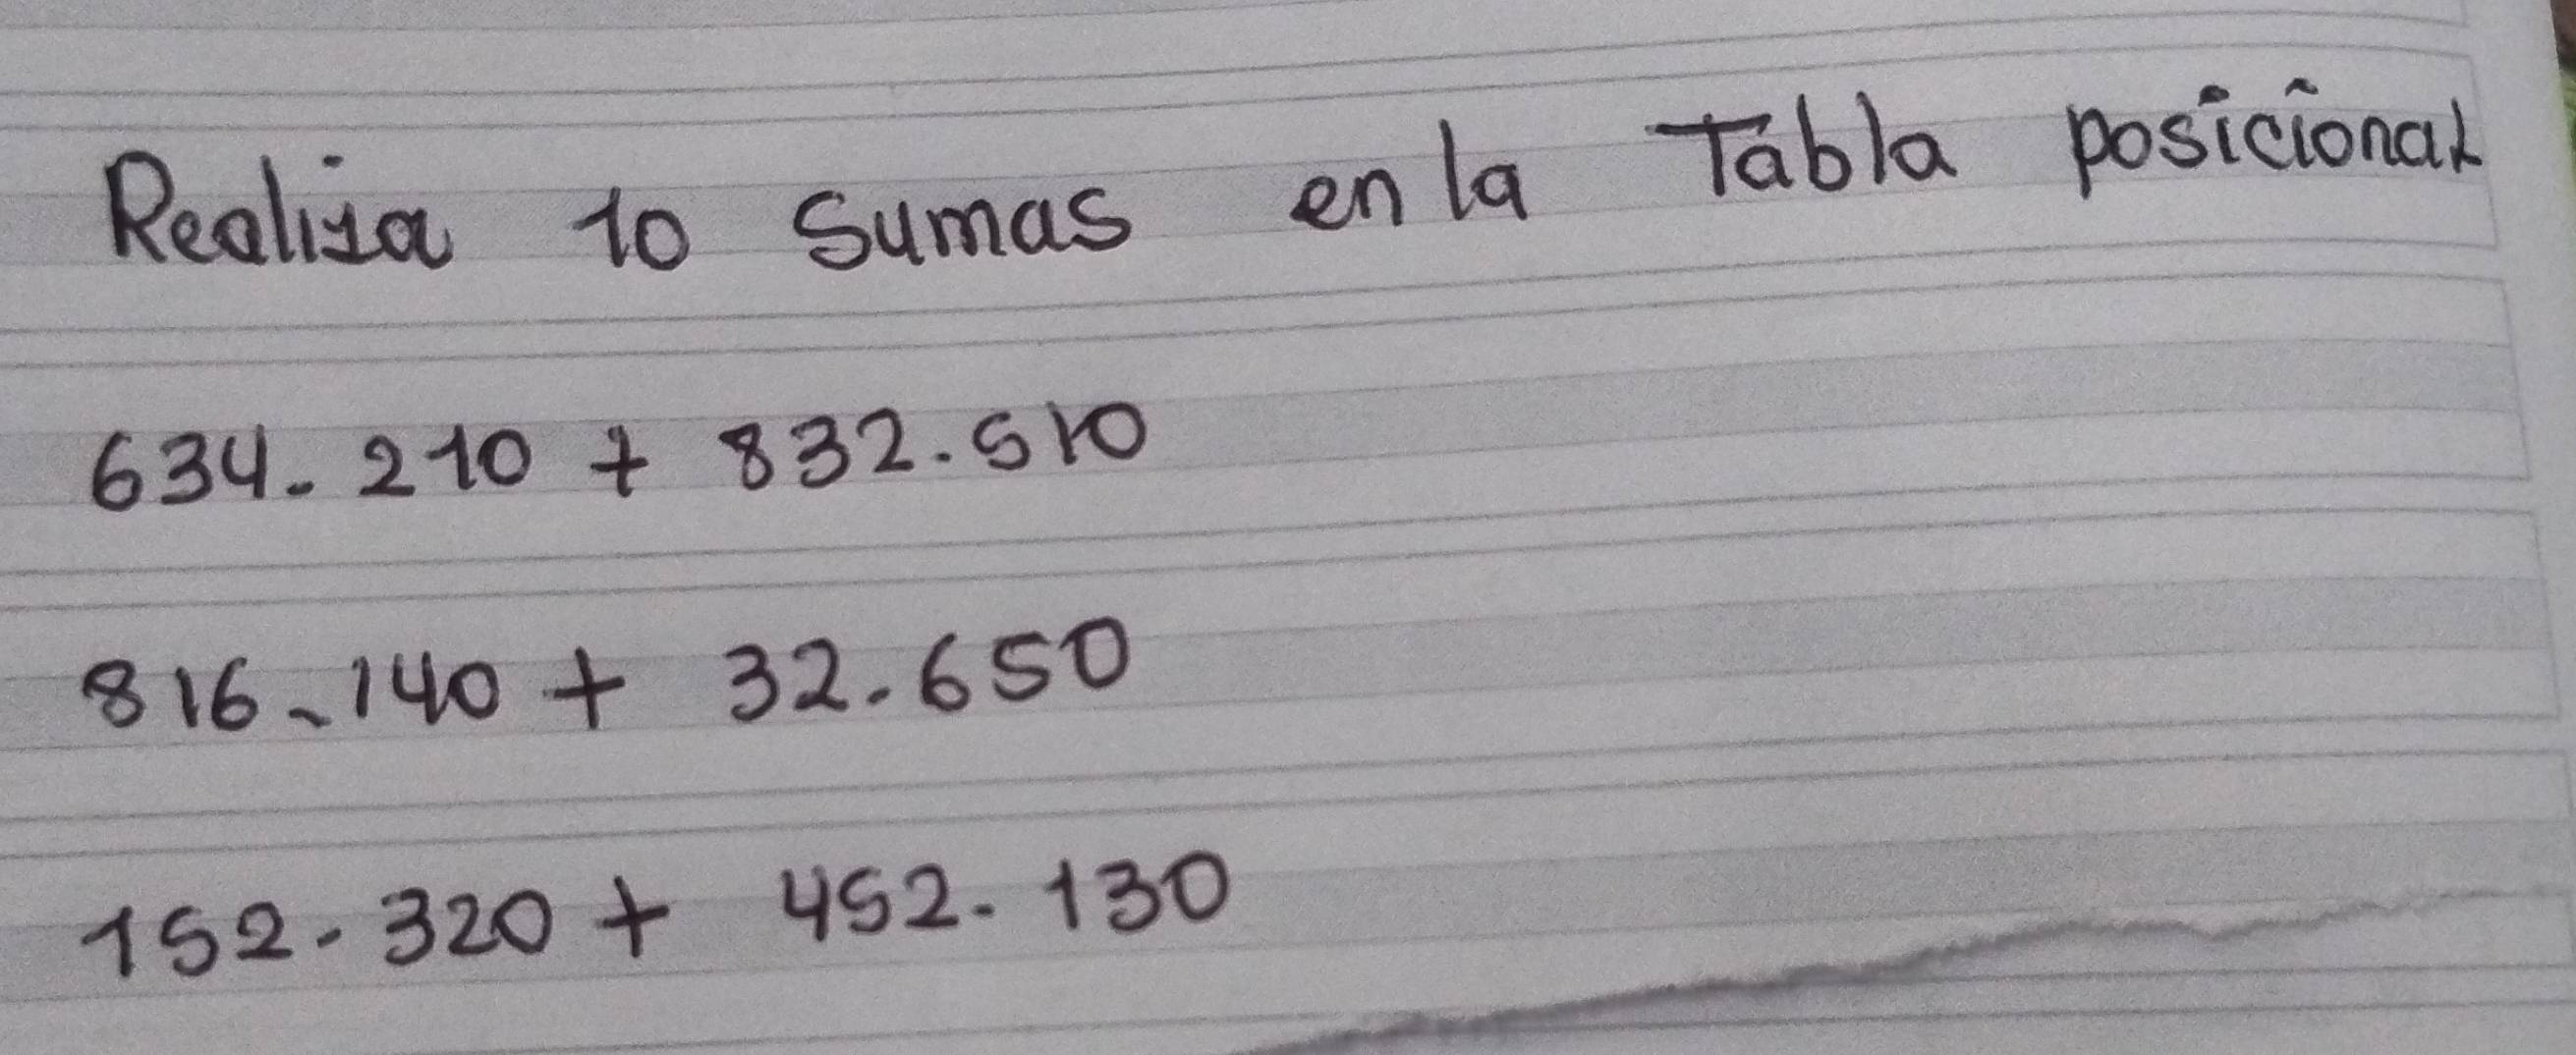 Realiza 10 Sumas en la Tabla posicional
634.210 + 832.510
816.140 + 32.650
152.320 + 452.130